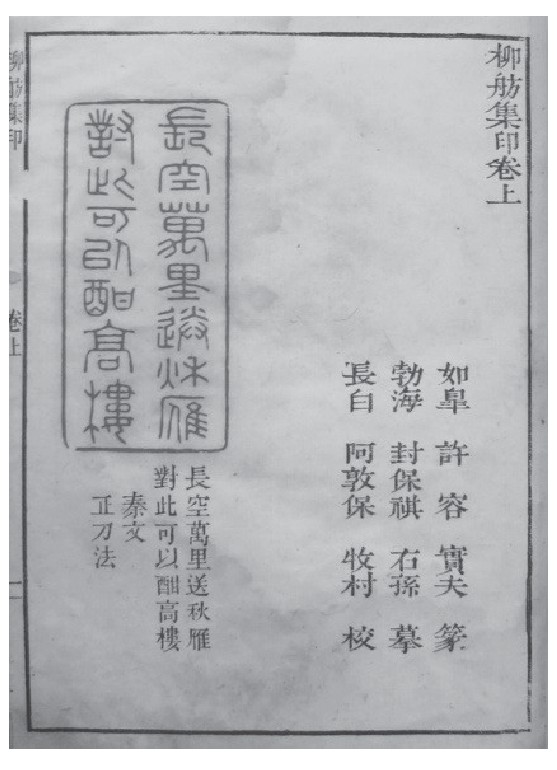 柳舫集印卷上
如臯 許容 實夫 篆
勃海 封保祺 右孫 摹
長白 阿敦保 牧村 校
長空萬里送秋雁
對此可以酣高樓
長空萬里送秋雁
對此可以酣高樓
秦文
正刀法
柳舫集印
卷上